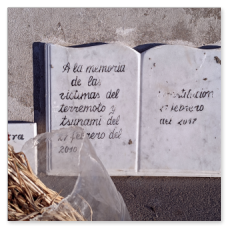 A la memoria
de las
victimas del
terremoto y
tsunami del
27 febrero del
2010
febrero
del 2017
tra